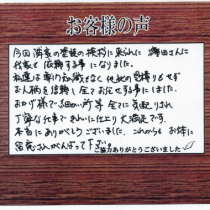 お客様の声
今回 実家の塗装の挨拶に来られた 鎌田さんに
代表を 依頼する事 になりました。
私達は 専門知識もなく 他社の見積りもせず
お人柄を信頼し 全てお任せする事にしました。
おかげ様で 細かい所等 全てに 気配りされ
丁寧な仕事で きれいに仕上り 大満足です。
本当に ありがとうございました。これからも お体に
留意され がんばって下さい。
ご協力ありがとうございました